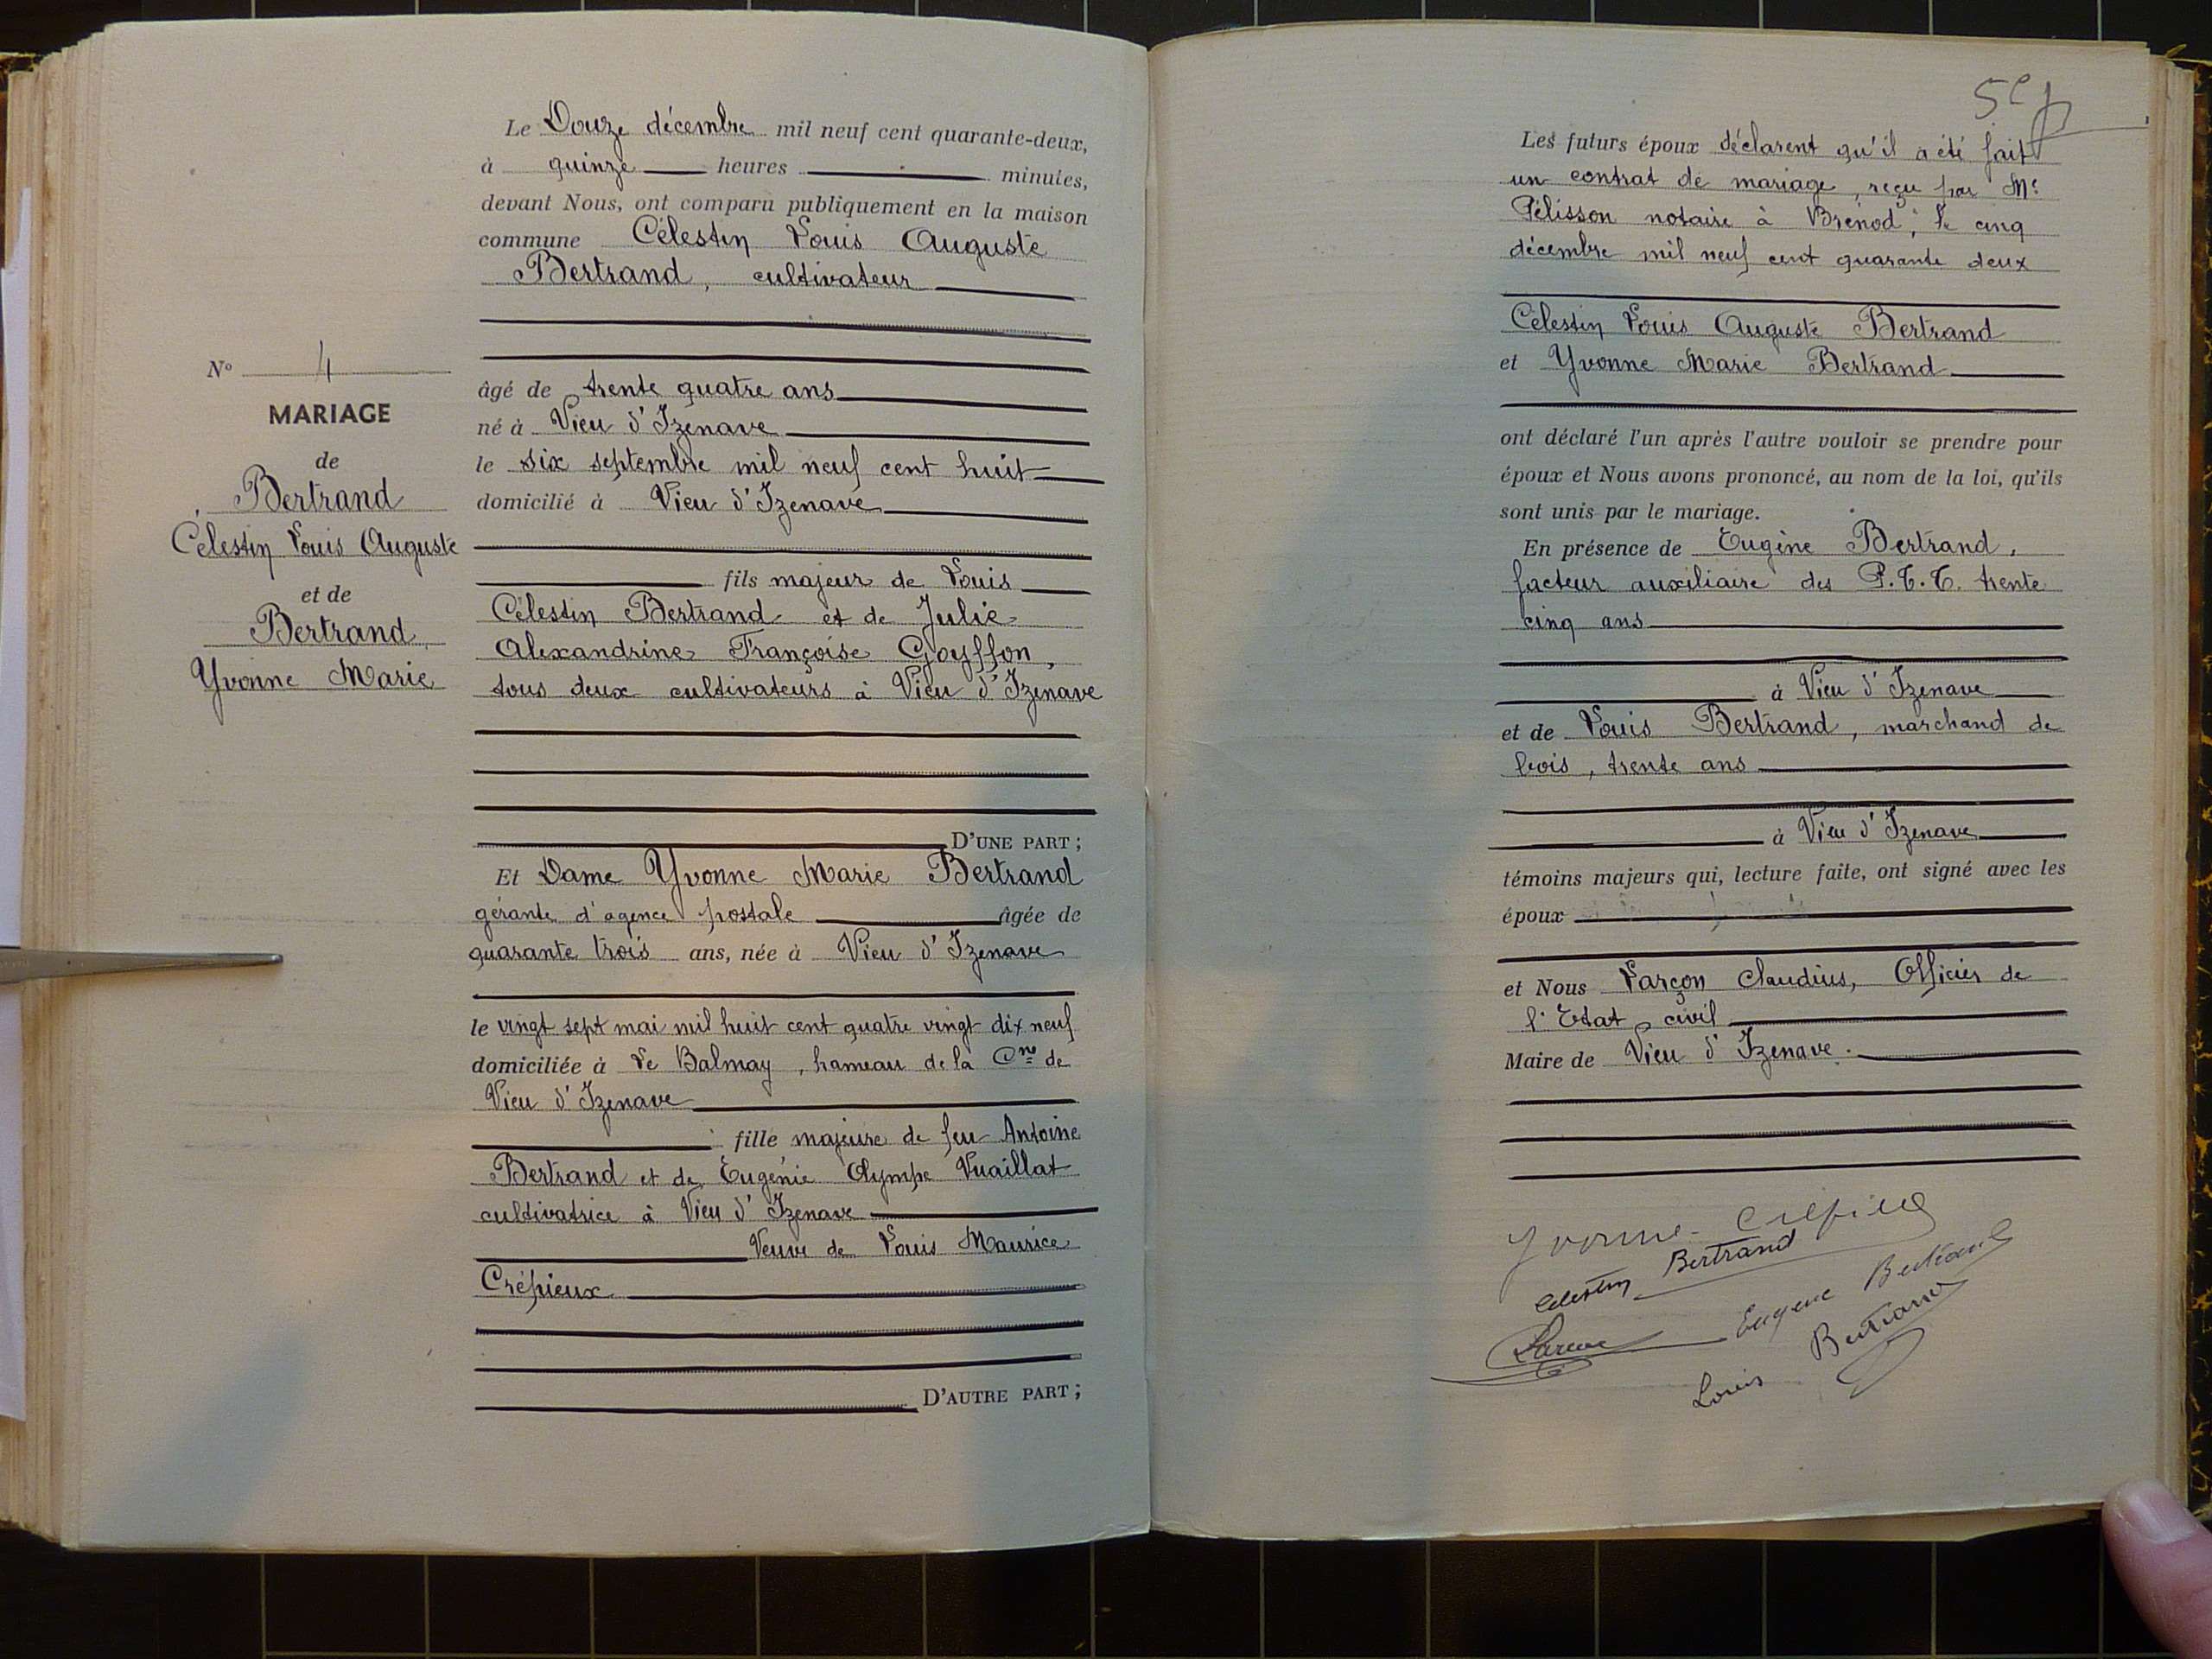 N° 4
MARIAGE
de
Bertrand
Célestin Louis Auguste
et de
Bertrand
Yvonne Marie
Le Douze décembre mil neuf cent quarante-deux,
à quinze heures minutes,
devant Nous, ont comparu publiquement en la maison
commune Célestin Louis Auguste
Bertrand, cultivateur
âgé de trente quatre ans
né à Vieu d'Izenave
le six septembre mil neuf cent huit
domicilié à Vieu d'Izenave
fils majeur de Louis
Célestin Bertrand et de Julie
Alexandrine Françoise Goyffon,
tous deux cultivateurs à Vieu d'Izenave
D'UNE PART ;
Et Dame Yvonne Marie Bertrand
gérante d'agence postale âgée de
quarante trois ans, née à Vieu d'Izenave
le vingt sept mai mil huit cent quatre vingt dix neuf
domiciliée à Le Balmay, hameau de la Cne de
Vieu d'Izenave
fille majeure de feu Antoine
Bertrand et de Eugénie Olympe Vuaillat
cultivatrice à Vieu d'Izenave
Veuve de Louis Maurice
Crépieux
D'AUTRE PART ;
Les futurs époux déclarent qu'il a été fait
un contrat de mariage, reçu par Me
Pélisson notaire à Brénod, le cinq
décembre mil neuf cent quarante deux
Célestin Louis Auguste Bertrand
et Yvonne Marie Bertrand
ont déclaré l'un après l'autre vouloir se prendre pour
époux et Nous avons prononcé, au nom de la loi, qu'ils
sont unis par le mariage.
En présence de Eugène Bertrand,
facteur auxiliaire des P.T.T. trente
cinq ans
à Vieu d'Izenave
et de Louis Bertrand, marchand de
bois, trente ans
à Vieu d'Izenave
témoins majeurs qui, lecture faite, ont signé avec les
époux
et Nous Larçon Claudius, Officier de
l'Etat civil
Maire de Vieu d'Izenave.
Yvonne
Celestin Bertrand
Eugene Bertrand
Louis Bertrand